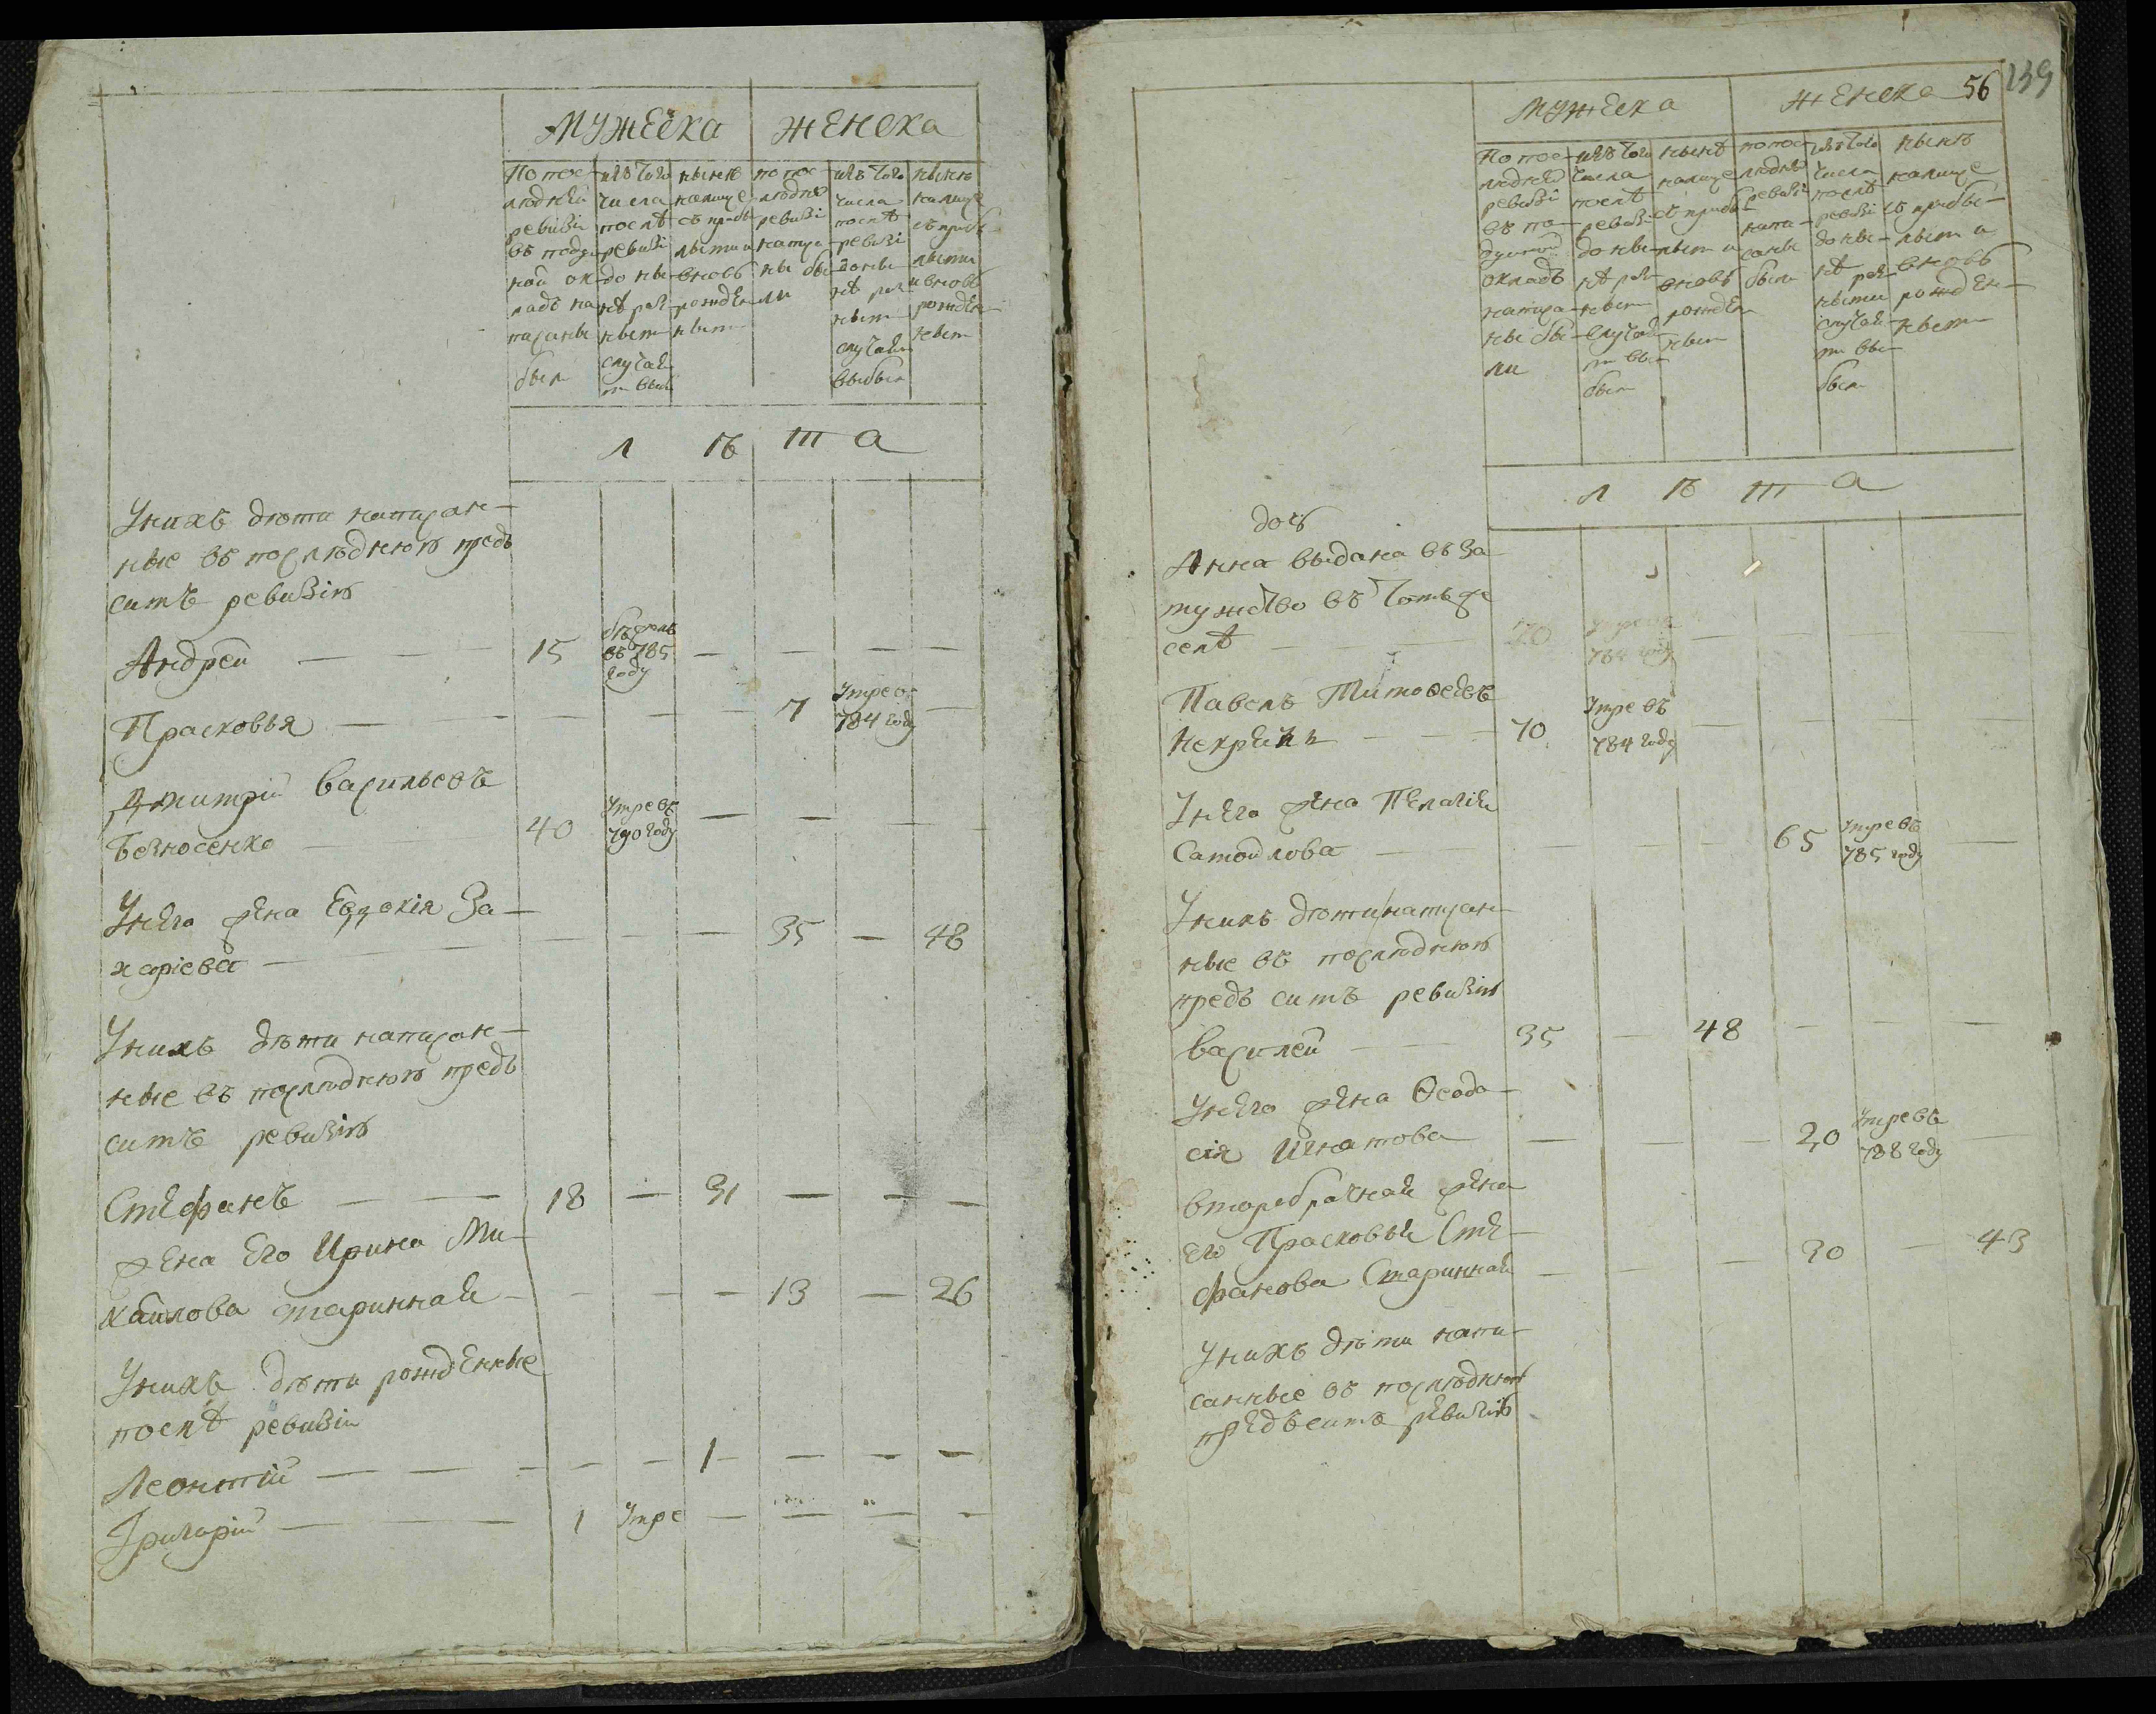 Мужеска
женска
По пос-
лѣдней
ревизіи
въ поду-
ной ок-
ладъ на
писаны
были
изъ того
числа
послѣ
ревизіи
до ны-
нѣ раз-
ными
случая
ми выб
нынѣ
налице
съ приб
лыми и
вновь
рожден
ными
по пос
ледней
ревизіи
написа
ны бы
ли
изъ того
числа
послѣ
ревизіи
до ны
нѣ раз
ными
случаями
выбыл
нынѣ
налице
съ приб
лыми
и вновь
рожден
ными
лѣта
У нихъ дѣти написан-
ные въ послѣднюю предъ
симъ ревизію
Андрей 15 въ 785 году
Прасковья 7 Умре въ 784 году
Дмитрій Васильевъ
40 Умре въ 790 году
У него жена Евдокія За-
харіева 35 48
У нихъ дѣти написан-
ные въ послѣднюю предъ
симъ ревизію
Стефанъ 18 31
жена Его Ирина Ми-
хайлова 13 26
У нихъ дѣти рожденные
послѣ ревизіи
Леонтій 1
Григорій 1 Умре
56 139
Мужеска
женска
По пос-
ледней
ревизіи
въ по-
душной
окладъ
написа-
ны бы-
ли
изъ того
числа
послѣ
ревизіи
до ны-
нѣ раз-
ными
случая
ми вы-
были
нынѣ
налице
съ прибы
лыми и
вновь
рожден
ными
по пос
ледней
ревизіи
напи-
саны
были
изъ того
числа
послѣ
ревизіи
до ны-
нѣ раз-
ными
случая-
ми вы-
были
нынѣ
налице
съ прибы-
лыми и
вновь
рожден-
ными
лѣта
дочь
Анна выдана въ за-
мужство въ томъ же
селѣ 20 784 году
Павелъ Тимофеевъ
70 Умре въ 784 году
У него жена Пелагія
Самойлова 65 Умре въ 785 году
У нихъ дѣти написан
ные въ послѣднюю
предъ симъ ревизію
Василей 35 48
У него жена Ѳеодо-
сія Игнатова 20 Умре въ 788 году
второбрачная жена
его Прасковья Сте-
фанова 30 43
У нихъ дѣти напи-
санные въ послѣднюю
предъ симъ ревизію